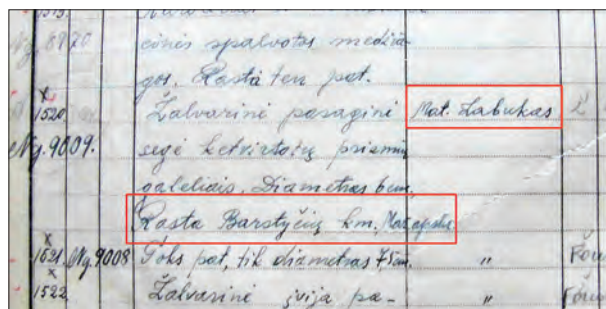 Ng. 8970
cinės spalvotos medžia-
gos. Rasta ten pat.
1520. Žalvarinė pasaginė Mat. Labukas
Ng. 9009. segė keturkaičių prizmių
galeliais. Diametras 6 cm.
Rasta Barstyčių km., Maž. apskr.
1521. Ng. 9008 Toks pat, tik diametras 7,5 cm. "
1522. Žalvarinė įvija pa- "